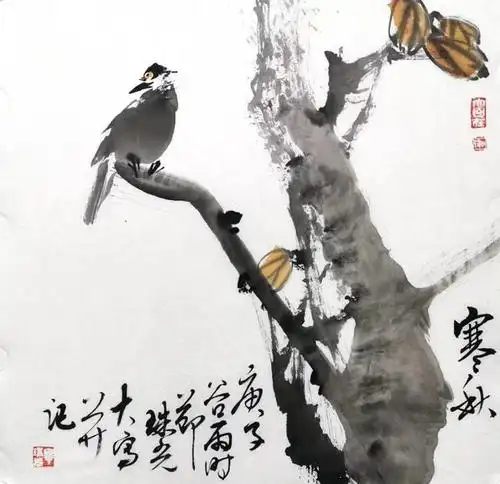 寒秋
庚子
谷雨时
节珠光
大写
并
记